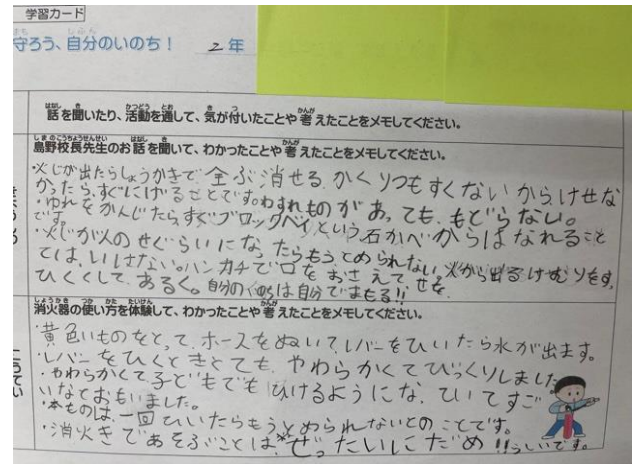 学習カード
守ろう、自分のいのち！ 2年
話を聞いたり、活動を通して、気が付いたことや考えたことをメモしてください。
島野校長先生のお話を聞いて、わかったことや考えたことをメモしてください。
・火じが出たらしょうかきで全ぶ消せるかくりつもすくないから、けせな
かったら、すぐににげることです。わすれものがあっても、もどらない。
・ゆれをかんじたらすぐブロックベイという石かべからはなれること
です。
・火じが人のせぐらいになったらもうとめられない。火から出るけむりをす
ては、いけない。ハンカチで口をおさえて、せを
ひくくして、あるく。自分のいのちは自分でまもる!!
消火器の使い方を体験して、わかったことや考えたことをメモしてください。
・黄色いものをとって、ホースをぬいて、レバーをひいたら水が出ます。
・レバーをひくときとても、やわらかくてびっくりしました
・やわらかくて子どもでもひけるようにな、ていてすご
いなとおもいました。
・本ものは、一回ひいたらもうとめられないとのことです。
・消火きであそぶことは、ぜったいにだめ!!らしいです。